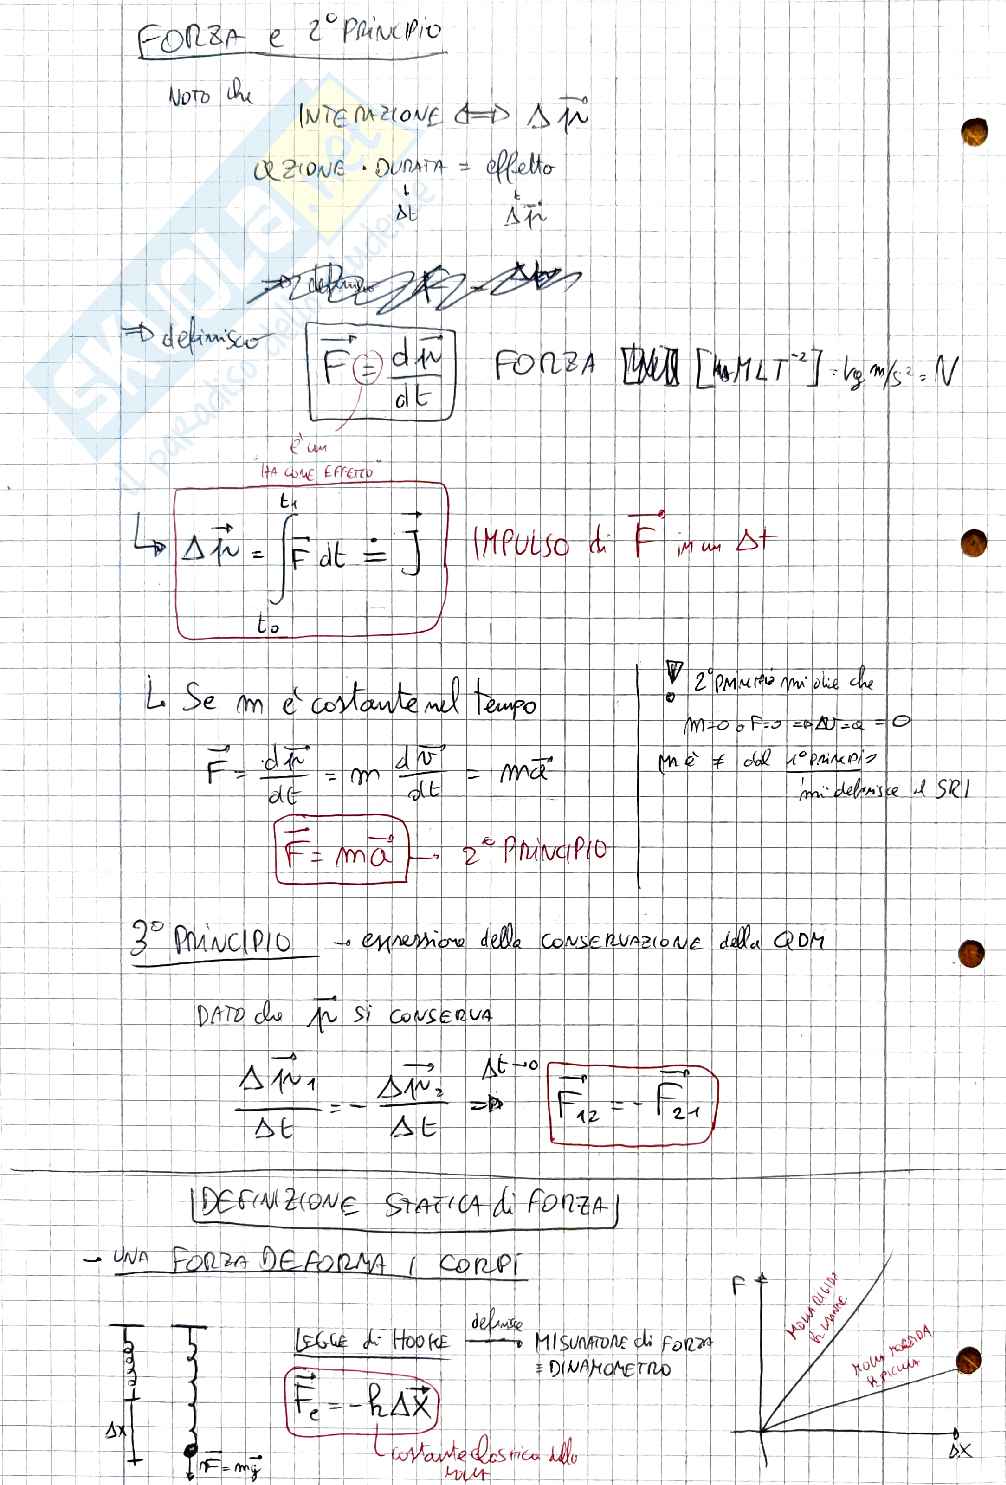 FORZA e 2° PRINCIPIO
NOTO che
INTERAZIONE ⇔ Δp⃗
AZIONE · DURATA = effetto
Δt Δp⃗
⇒ definisco F⃗ = dp⃗/dt FORZA [MLT⁻²] = kg m/s² = N
è un
"HA COME EFFETTO"
Δp⃗ = ∫ F⃗ dt ≐ J⃗ IMPULSO di F⃗ in un Δt
t₁
t₀
Se m è costante nel tempo
F⃗ = dp⃗/dt = m dv⃗/dt = ma⃗
F⃗ = ma⃗ → 2° PRINCIPIO
! 2° PRINCIPIO mi dice che
M=0 o F=0 ⇒ ΔV=a=0
ma è ≠ dal 1° PRINCIPIO
mi definisce il SRI
3° PRINCIPIO → espressione della CONSERVAZIONE della QDM
DATO che p⃗ SI CONSERVA
Δp⃗₁/Δt = - Δp⃗₂/Δt ⇒ F⃗₁₂ = - F⃗₂₁
Δt→0
DEFINIZIONE STATICA di FORZA
→ UNA FORZA DEFORMA I CORPI
LEGGE di HOOKE definisce → MISURATORE di FORZA
= DINAMOMETRO
F⃗e = -kΔx⃗
costante elastica della
molla
Δx
F⃗ = mg⃗
F
MOLLA RIGIDA
K GRANDE
MOLLA MORBIDA
K PICCOLA
ΔX
SKUOLA.net
il paradiso dello studente